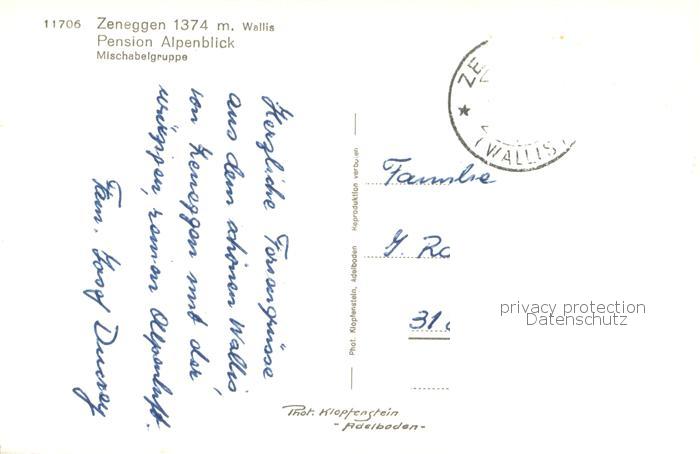 11706 Zeneggen 1374 m. Wallis
Pension Alpenblick
Mischabelgruppe
Herzliche Feriengrüsse
aus dem schönen Wallis,
von Zeneggen mit der
würzigen, reinen Alpenluft.
Fam. Josef
Phot. Klopfenstein, Adelboden Reproduktion verboten
ZE
(WALLIS)
Familie
J. Ro
31
privacy protection
Datenschutz
Phot. Klopfenstein
- Adelboden -